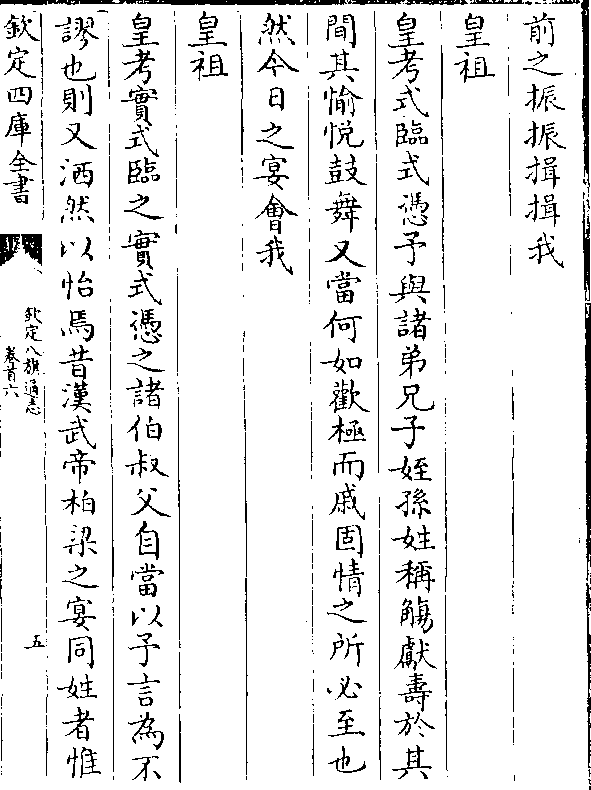 前之振振揖揖我
皇祖
皇考式臨式憑予與諸弟兄子姪孫姓稱觴獻壽於其
間其愉悅鼓舞又當何如歡極而戚固情之所必至也
然今日之宴會我
皇祖
皇考實式臨之實式憑之諸伯叔父自當以予言為不
謬也則又洒然以怡焉昔漢武帝柏梁之宴同姓者惟
欽定四庫全書
欽定八旗通志
卷首六
五